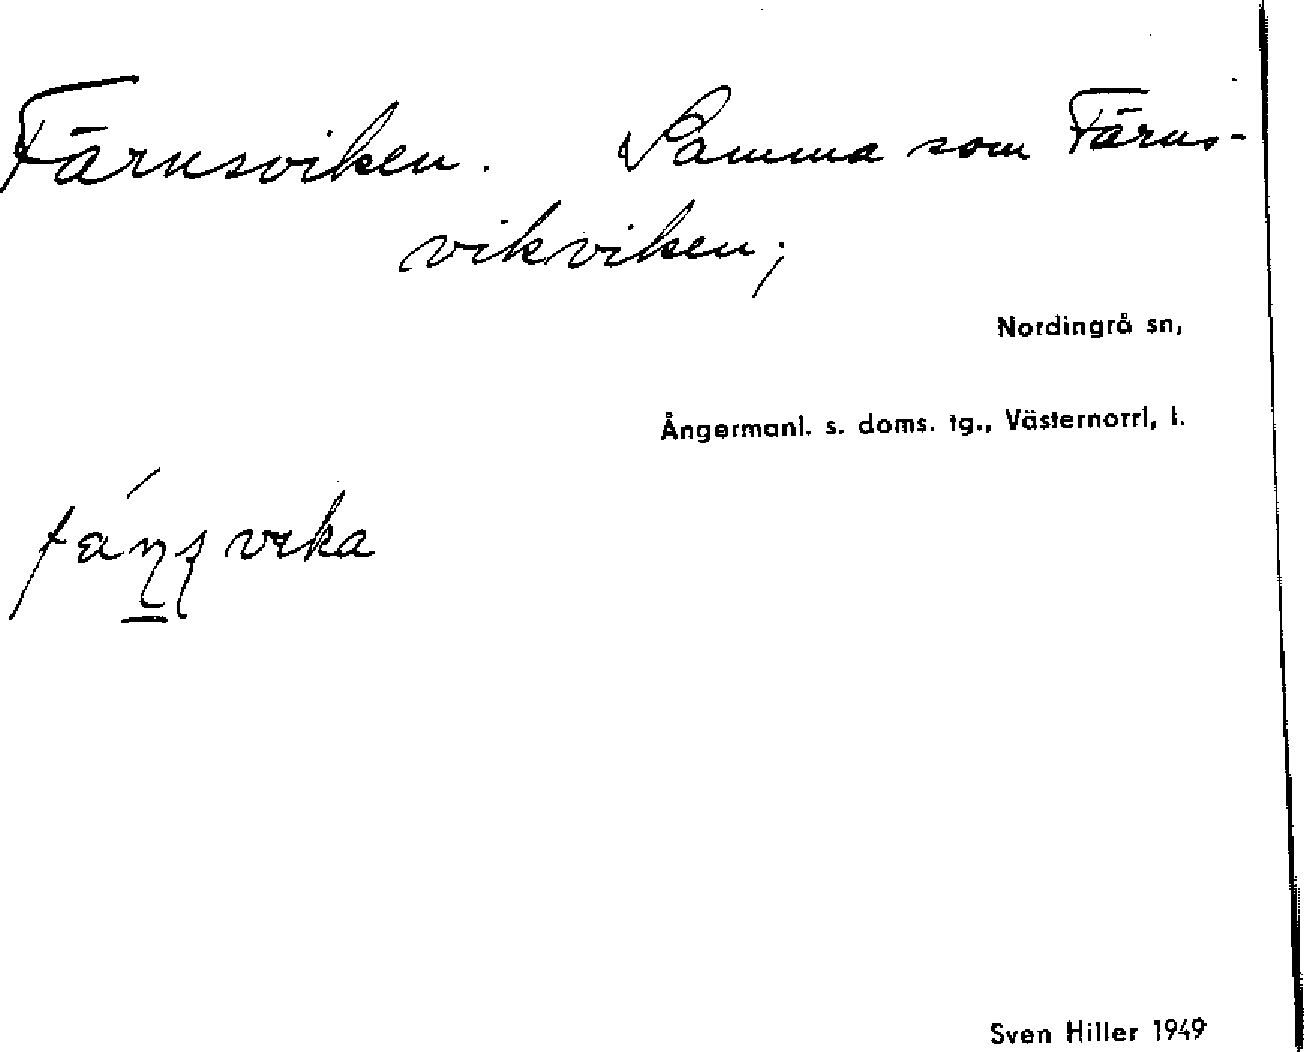 Färnsviken. Samma som Färns-
vikviken;
Nordingrå sn,
Ångermanl. s. doms. tg., Västernorrl, l.
Sven Hiller 1949